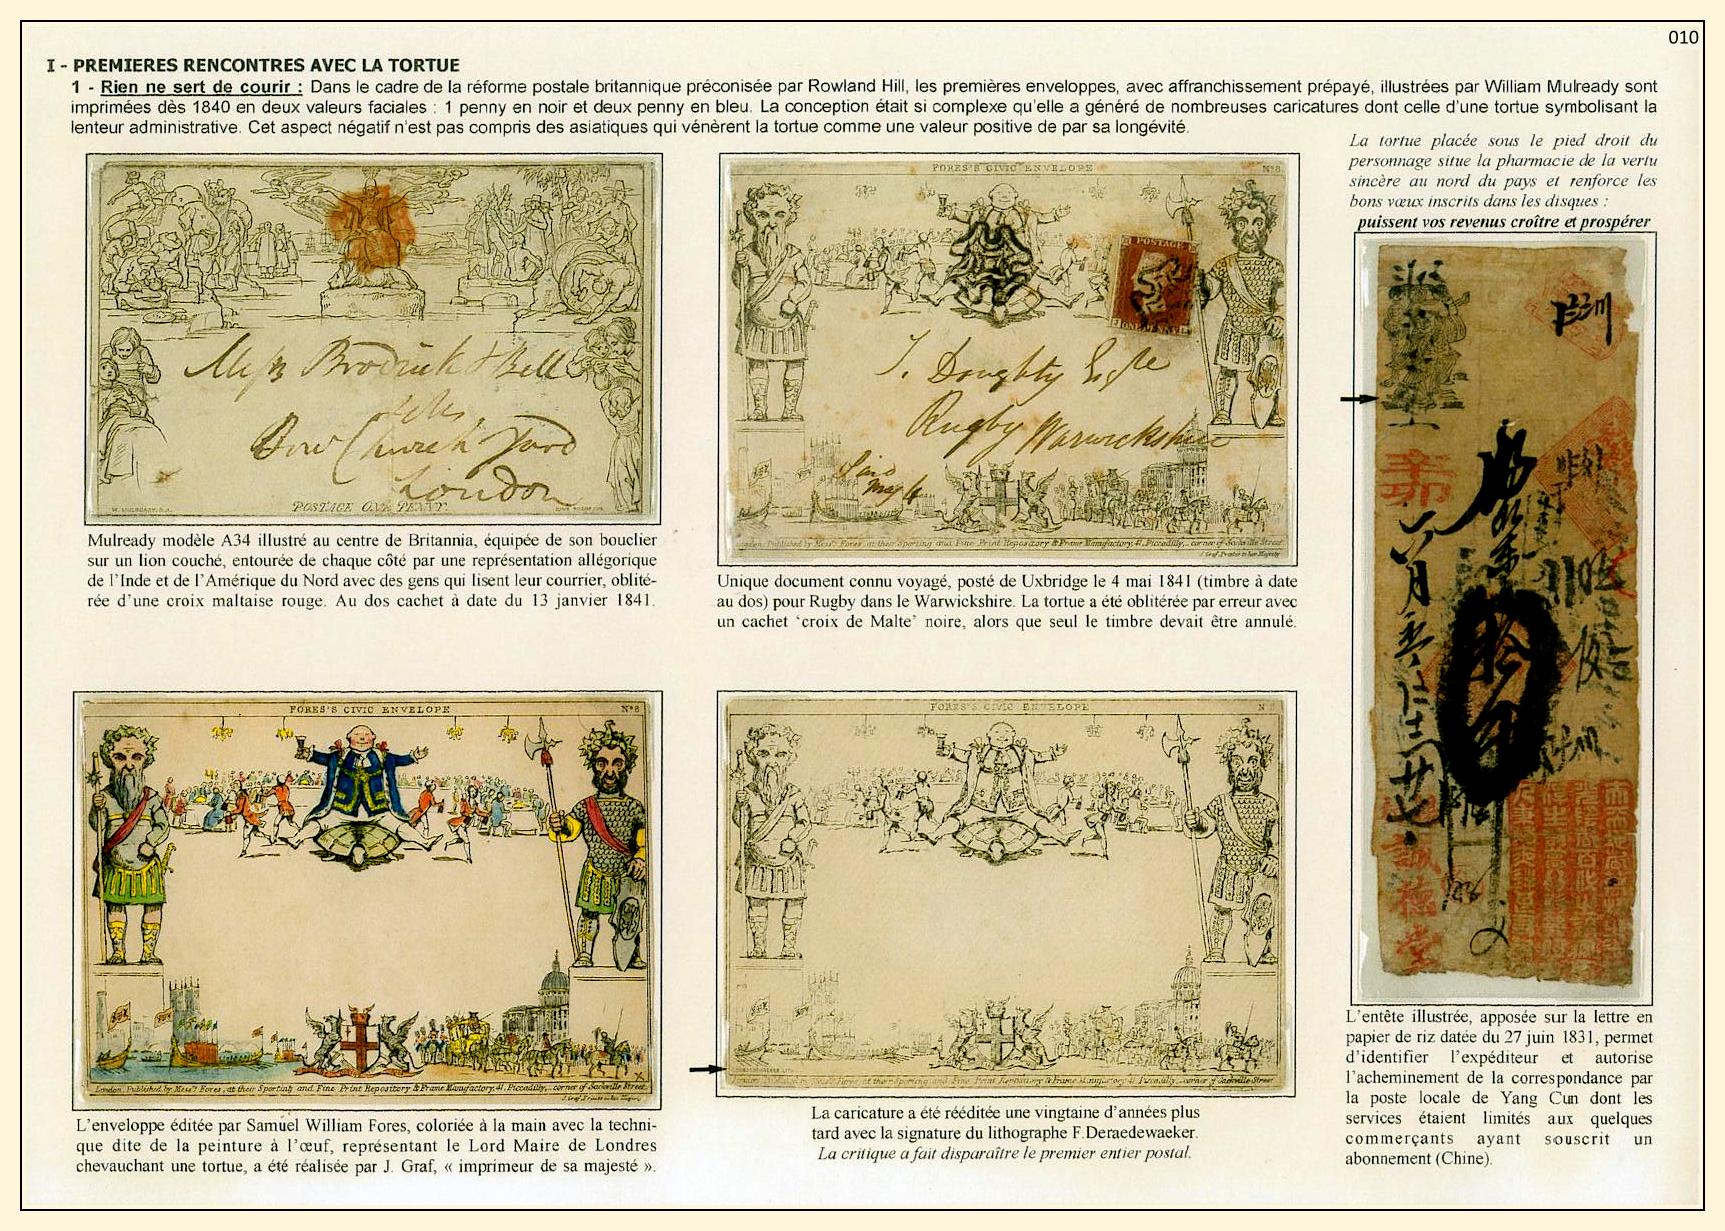 010
I - PREMIERES RENCONTRES AVEC LA TORTUE
1 - Rien ne sert de courir : Dans le cadre de la réforme postale britannique préconisée par Rowland Hill, les premières enveloppes, avec affranchissement prépayé, illustrées par William Mulready sont
imprimées dès 1840 en deux valeurs faciales : 1 penny en noir et deux penny en bleu. La conception était si complexe qu'elle a généré de nombreuses caricatures dont celle d'une tortue symbolisant la
lenteur administrative. Cet aspect négatif n'est pas compris des asiatiques qui vénèrent la tortue comme une valeur positive de par sa longévité.
La tortue placée sous le pied droit du
personnage situe la pharmacie de la vertu
sincère au nord du pays et renforce les
bons vœux inscrits dans les disques :
puissent vos revenus croître et prospérer
Brodrick & Bell
Bow Church Yard
London
POSTAGE ONE PENNY
W. MULREADY, R.A.
Mulready modèle A34 illustré au centre de Britannia, équipée de son bouclier
sur un lion couché, entourée de chaque côté par une représentation allégorique
de l'Inde et de l'Amérique du Nord avec des gens qui lisent leur courrier, oblité-
rée d'une croix maltaise rouge. Au dos cachet à date du 13 janvier 1841.
FORES'S CIVIC ENVELOPE
No 8
POSTAGE
ONE PENNY
T. Doughty Esqre
Rugby Warwickshire
London, Published by Messrs Fores, at their Sporting and Fine Print Repository & Frame Manufactory, 41, Piccadilly, corner of Sackville Street
J. Graf Printer to her Majesty
Unique document connu voyagé, posté de Uxbridge le 4 mai 1841 (timbre à date
au dos) pour Rugby dans le Warwickshire. La tortue a été oblitérée par erreur avec
un cachet 'croix de Malte' noire, alors que seul le timbre devait être annulé.
FORES'S CIVIC ENVELOPE
No 8
London, Published by Messrs Fores, at their Sporting and Fine Print Repository & Frame Manufactory, 41, Piccadilly, corner of Sackville Street
J. Graf Printer to her Majesty
L'enveloppe éditée par Samuel William Fores, coloriée à la main avec la techni-
que dite de la peinture à l'œuf, représentant le Lord Maire de Londres
chevauchant une tortue, a été réalisée par J. Graf, « imprimeur de sa majesté ».
FORES'S CIVIC ENVELOPE
Published by Messrs Fores at their Sporting and Fine Print Repository & Frame Manufactory 41 Piccadilly, corner of Sackville Street
La caricature a été rééditée une vingtaine d'années plus
tard avec la signature du lithographe F.Deraedewaeker.
La critique a fait disparaître le premier entier postal.
誠德堂
L'entête illustrée, apposée sur la lettre en
papier de riz datée du 27 juin 1831, permet
d'identifier l'expéditeur et autorise
l'acheminement de la correspondance par
la poste locale de Yang Cun dont les
services étaient limités aux quelques
commerçants ayant souscrit un
abonnement (Chine).